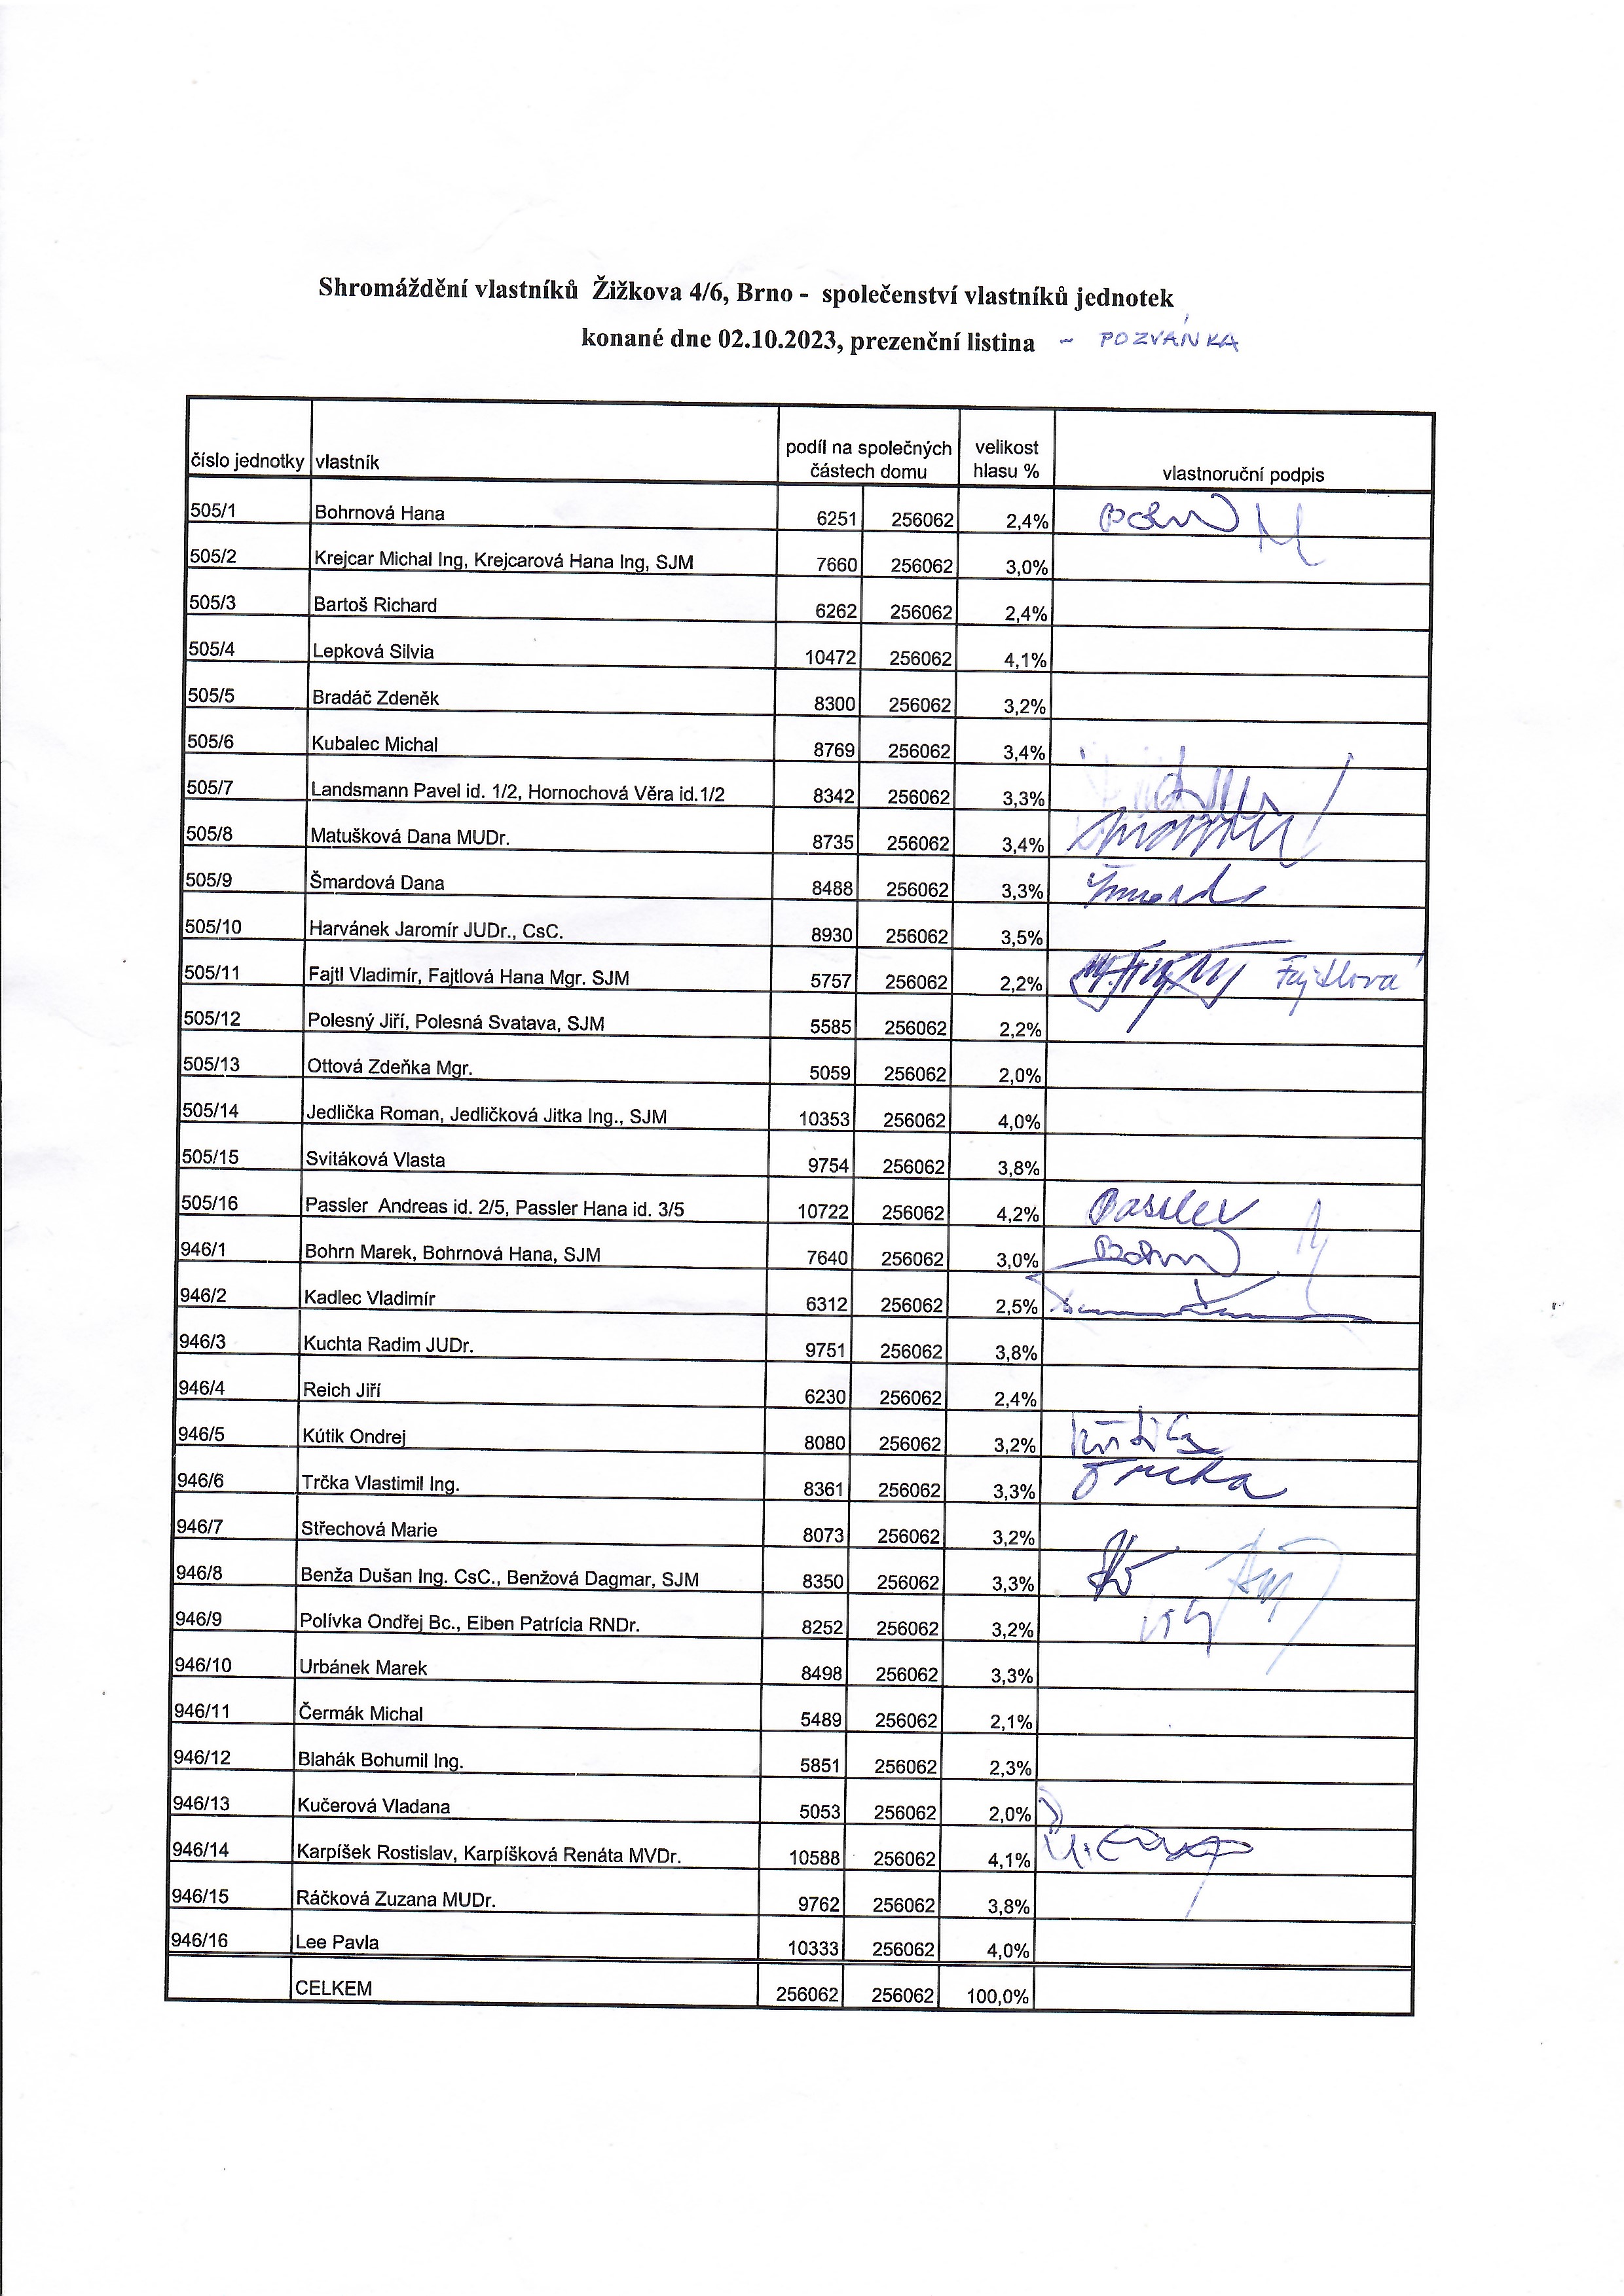 Shromáždění vlastníků Žižkova 4/6, Brno - společenství vlastníků jednotek
konané dne 02.10.2023, prezenční listina - POZVÁNKA
číslo jednotky vlastník podíl na společných částech domu velikost hlasu % vlastnoruční podpis
505/1 Bohrnová Hana 6251 256062 2,4% Bohrn
505/2 Krejcar Michal Ing, Krejcarová Hana Ing, SJM 7660 256062 3,0%
505/3 Bartoš Richard 6262 256062 2,4%
505/4 Lepková Silvia 10472 256062 4,1%
505/5 Bradáč Zdeněk 8300 256062 3,2%
505/6 Kubalec Michal 8769 256062 3,4%
505/7 Landsmann Pavel id. 1/2, Hornochová Věra id.1/2 8342 256062 3,3%
505/8 Matušková Dana MUDr. 8735 256062 3,4%
505/9 Šmardová Dana 8488 256062 3,3%
505/10 Harvánek Jaromír JUDr., CsC. 8930 256062 3,5%
505/11 Fajtl Vladimír, Fajtlová Hana Mgr. SJM 5757 256062 2,2% Fajtlová
505/12 Polesný Jiří, Polesná Svatava, SJM 5585 256062 2,2%
505/13 Ottová Zdeňka Mgr. 5059 256062 2,0%
505/14 Jedlička Roman, Jedličková Jitka Ing., SJM 10353 256062 4,0%
505/15 Svitáková Vlasta 9754 256062 3,8%
505/16 Passler Andreas id. 2/5, Passler Hana id. 3/5 10722 256062 4,2% Passler
946/1 Bohrn Marek, Bohrnová Hana, SJM 7640 256062 3,0% Bohrn
946/2 Kadlec Vladimír 6312 256062 2,5%
946/3 Kuchta Radim JUDr. 9751 256062 3,8%
946/4 Reich Jiří 6230 256062 2,4%
946/5 Kútik Ondrej 8080 256062 3,2% Kútik
946/6 Trčka Vlastimil Ing. 8361 256062 3,3% Trčka
946/7 Střechová Marie 8073 256062 3,2%
946/8 Benža Dušan Ing. CsC., Benžová Dagmar, SJM 8350 256062 3,3%
946/9 Polívka Ondřej Bc., Eiben Patrícia RNDr. 8252 256062 3,2%
946/10 Urbánek Marek 8498 256062 3,3%
946/11 Čermák Michal 5489 256062 2,1%
946/12 Blahák Bohumil Ing. 5851 256062 2,3%
946/13 Kučerová Vladana 5053 256062 2,0%
946/14 Karpíšek Rostislav, Karpíšková Renáta MVDr. 10588 256062 4,1%
946/15 Ráčková Zuzana MUDr. 9762 256062 3,8%
946/16 Lee Pavla 10333 256062 4,0%
CELKEM 256062 256062 100,0%